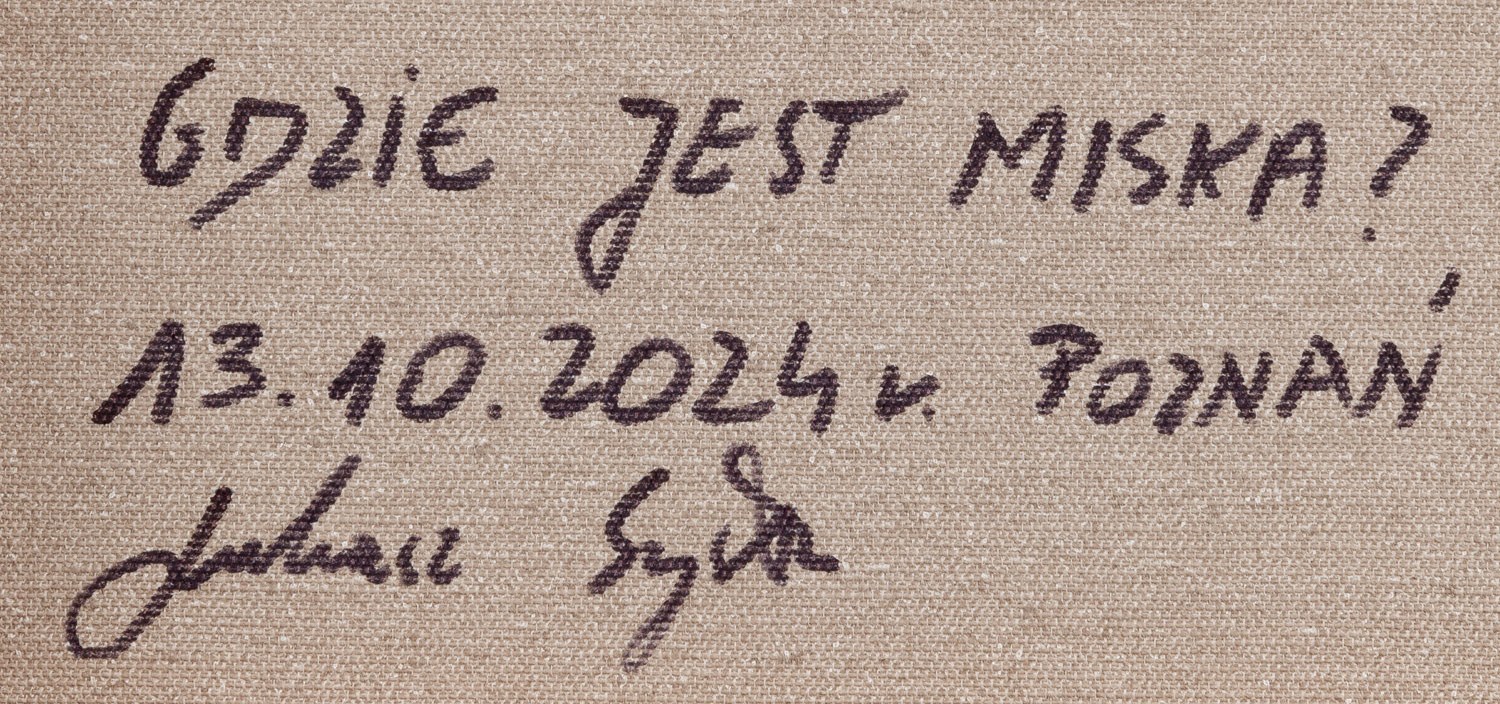 GDZIE JEST MISKA?
13.10.2024 r. POZNAŃ
Łukasz